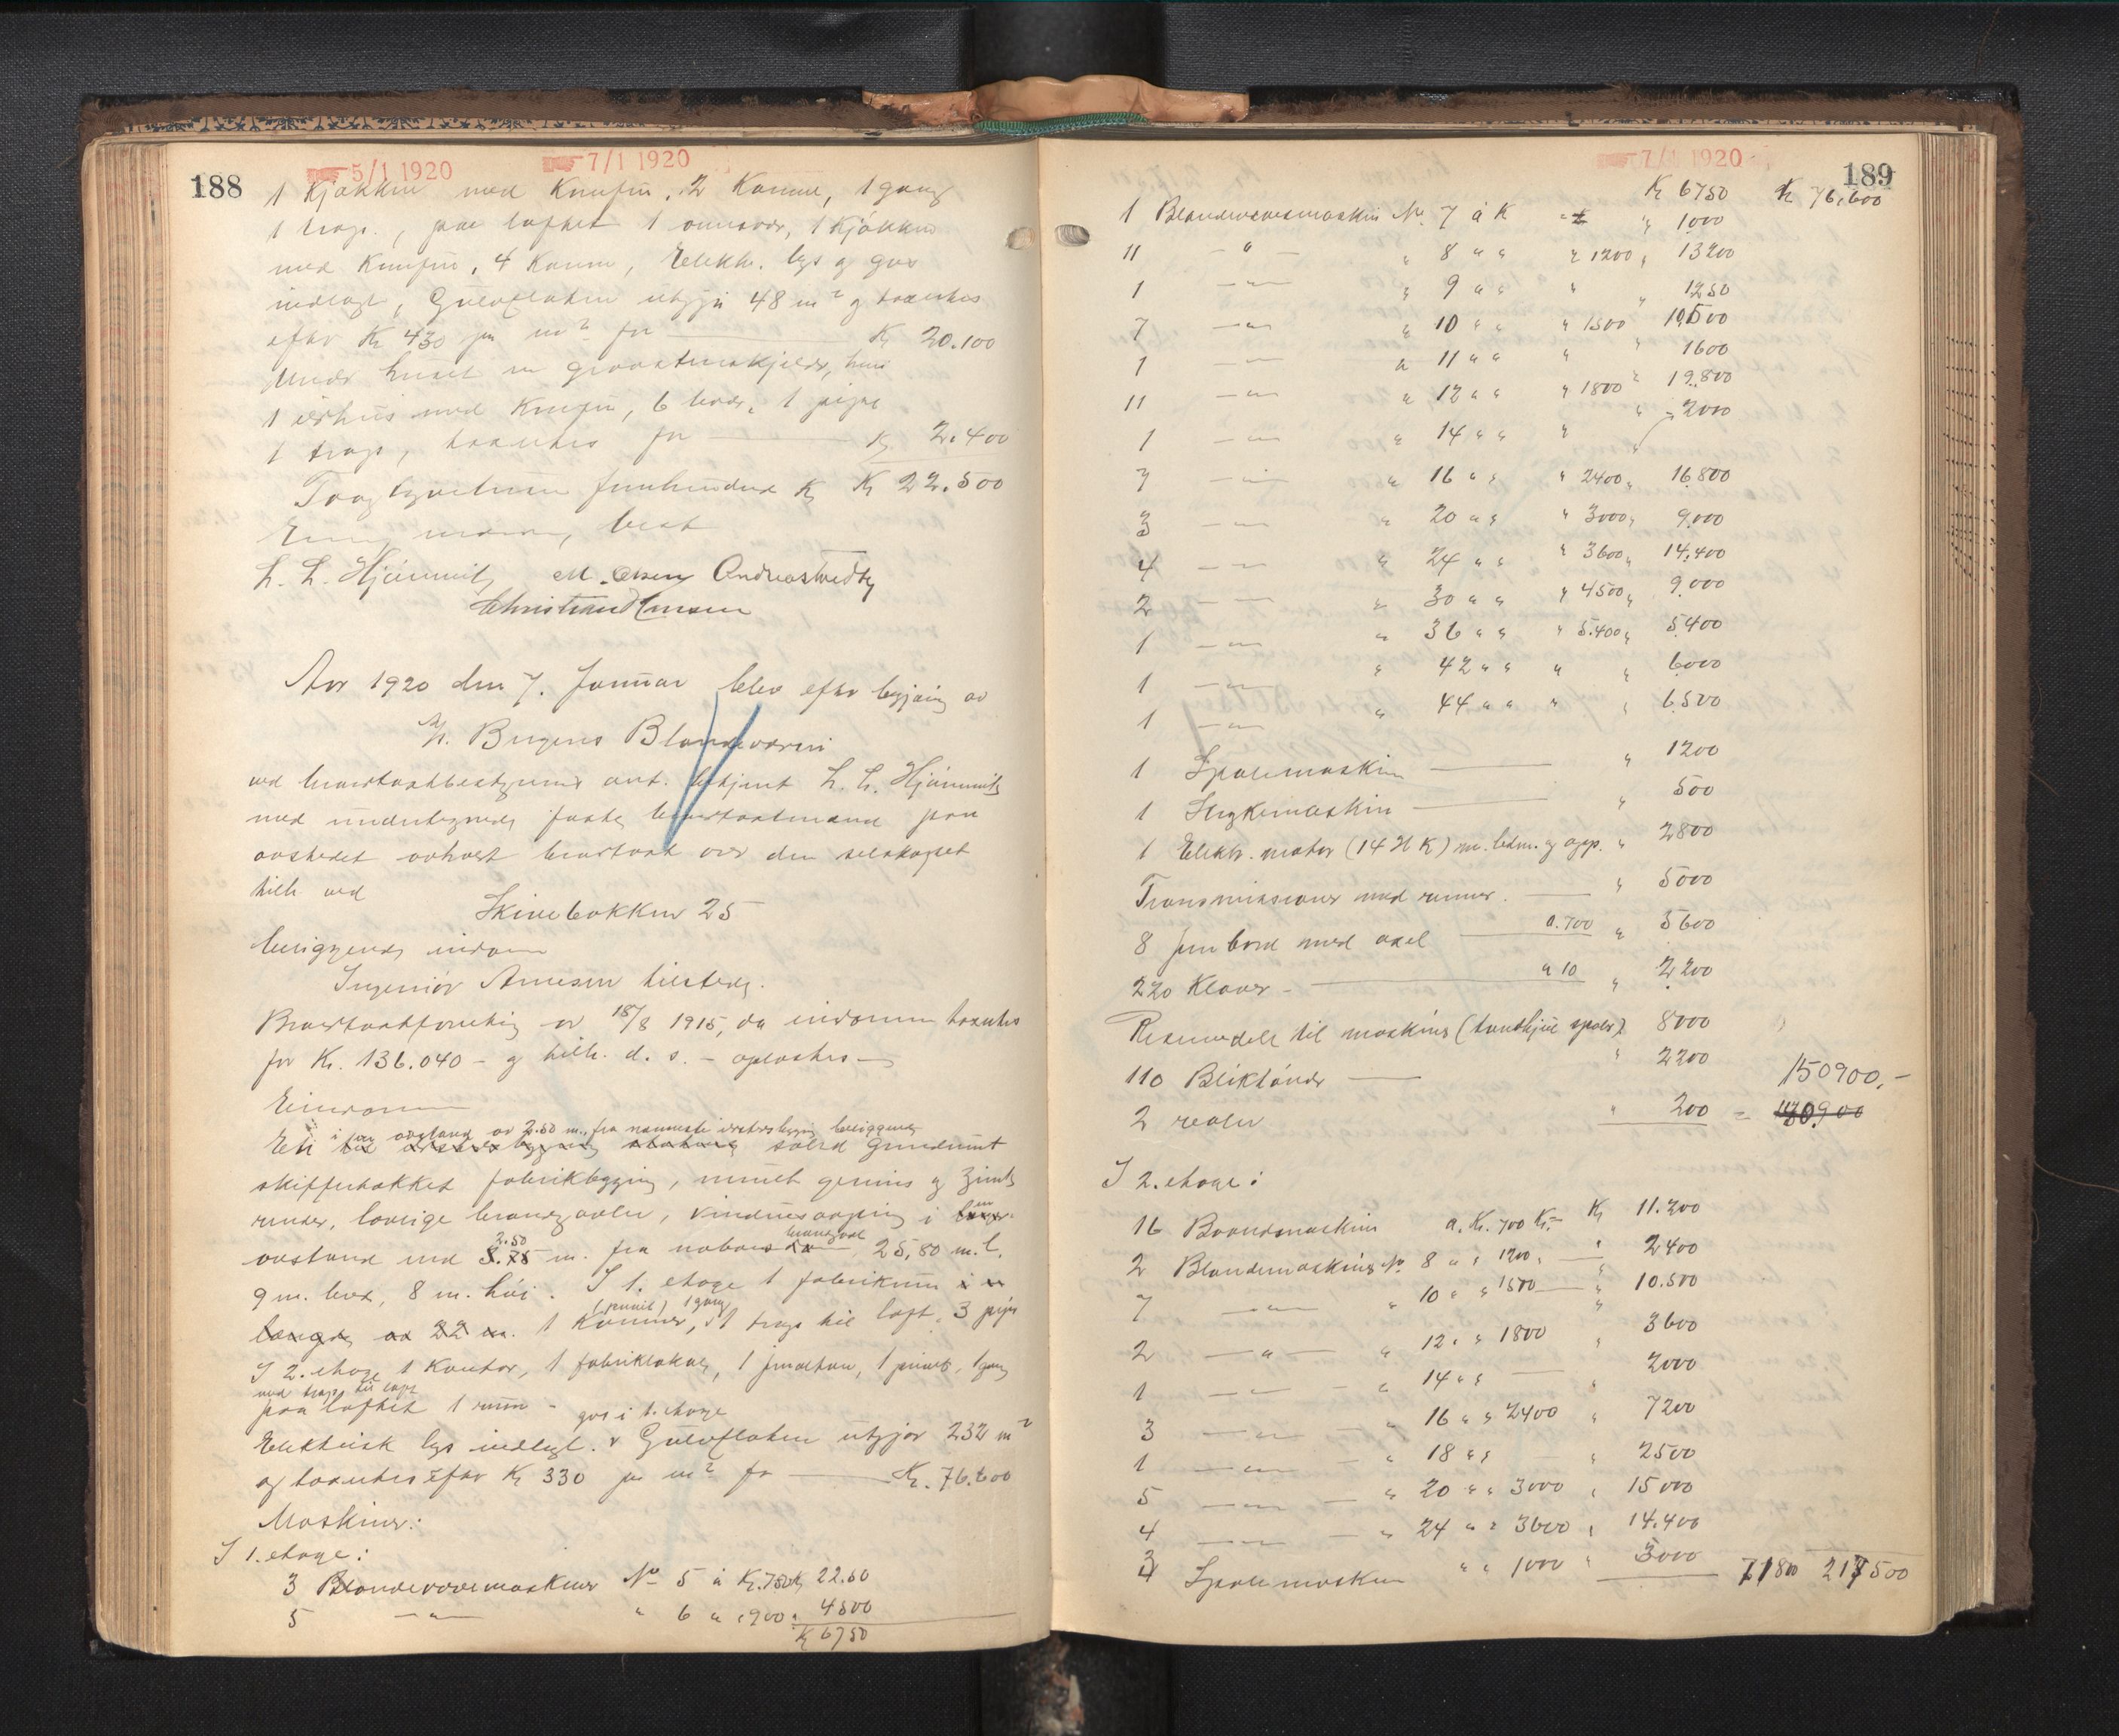 188
5/1 1920
7/1 1920
1 Kjøkken med Komfur, 2 Kamre, 1 gang
1 trap., paa loftet 1 1 Kjøkken
med Komfur, 4 Kamre, Elektr. lys og gas
indlagt, Gulvflaten utgjør 48 m² og taxeres
efter Kr 430 pr m² for Kr 20.100
Under huset en graastenskjelder, hvori
1 ildhus med Komfur, 6 boder, 1 pipe
1 trap, taxeres for Kr 2.400
Toog tyvetusen femhundred Kr Kr 22.500
L. L. M. Olsen Andreas Tvedt
Christian
Aar 1920 den 7. Januar blev efter begjæring av
A/S. Bergens Blondeveveri
ved branntakstbestyrerens ant. betjent L. L.
med undertegnede faste branntakstmænd paa
avstedet avholdt branntakst over den selskapet
tilh ved
Skivebakken 25
beliggende eiendom
Ingeniør Arnesen tilstede.
Branntakstforretning av 18/8 1915, da eiendommen taxertes
for Kr. 136.040 - og tilh. d. s. - oplæstes -
Eiendommen
i en avstand av 2.50 m. fra nærmeste beliggende
En solid grundmuret
skiffertækket fabrikbygning, muret gesims og zink
render, lovlige brandgavler, vindusaapning i en
avstand ved 2.50 m. fra naboens brandgavl 25,80 m. l.
9 m. bred, 8 m. høi. I 1. etage 1 fabrikrum
1 Kammer, (muret) 1 gang 1 trap til loft. 3 piper
I 2. etage 1 Kontor, 1 fabriklokale, 1 1 privet, 1 gang
med trap til loft
paa loftet 1 rum -
Elektrisk lys indlagt. gas i 1. etage Gulvflaten utgjør 232 m²
og taxeres efter Kr 330 pr m² for Kr. 76.600
Maskiner:
I 1. etage:
3 Blondevævemaskiner No 5 à Kr. 750 Kr 22.50
5 — " — " 6 " " 900 " 4500
Kr 6750
7/1 1920
189
Kr 6750 Kr 76,600
1 Blondevævemaskin No. 7 à K " 1000
11 — " — " 8 " " " 1200 " 13200
1 — " — " 9 " " " " 1250
7 — " — " 10 " " " 1500 10500
1 — " — " 11 " " " " 1600
11 — " — " 12 " " " 1800 " 19.800
1 — " — " 14 " " " " 2000
7 — " — " 16 " " " 2400 " 16.800
3 — " — " 20 " " " 3000 " 9.000
4 — " — " 24 " " " 3600 " 14.400
2 — " — " 30 " " " 4500 " 9.000
1 — " — " 36 " " " 5.400 " 5.400
1 — " — " 42 " " " " 6000
1 — " — " 44 " " " " 6500
1 Spolemaskin " 1200
1 Strykemaskin " 500
1 Elektr. motor (14 H K) m. ledn. og app. " 2800
Transmissioner med remmer. " 5000
8 Jernbord med axel a. 700 " 5600
220 Klaver - a 10 " 2200
Reservedele til maskiner (tandhjul spoler) 8000
110 Bliktønder " 2200
150900,-
2 reoler " 200 =
I 2. etage:
16 Baandmaskiner a. Kr. 700 Kr.- Kr 11.200
2 Blondemaskiner No 8 " " 1200 " 2400
7 — " — " 10 " " 1500 " 10.500
2 — " — " 12 " " 1800 " 3600
1 — " — " 14 " " " 2000
3 — " — " 16 " " 2400 " 7200
1 — " — " 18 " " " 2500
5 — " — " 20 " " 3000 " 15000
4 — " — " 24 " " 3600 " 14.400
3 Spolemaskin " " 1000 " 3000 71800 217500